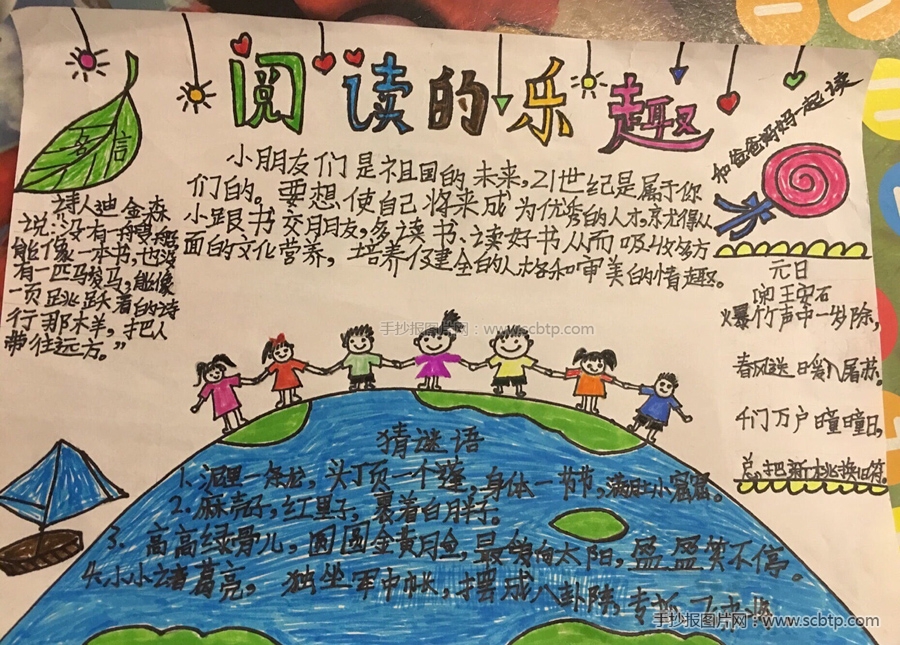 阅读的乐趣
书信
和爸爸妈妈一起读
小朋友们是祖国的未来,21世纪是属于你
们的。要想使自己将来成为优秀的人才,就得从
小跟书交月朋友,多读书、读好书从而吸收多方
面的文化营养,培养健全的人格和审美的情趣。
诗人迪金森
说:"没有一艘船
能像一本书,也没
有一匹马骏马,能像
一页跳跃着的诗
行那木羊,把人
带往远方。"
元日
王安石
爆竹声中一岁除,
春风送暖入屠苏。
千门万户曈曈日,
总把新桃换旧符。
手抄报图片网:www.scbtp.com
猜谜语
1、泥里一条龙,头顶一个蓬,身体一节节,满肚小窟窿。
2.麻壳子,红里子,裹着白胖子。
3、高高绿骨儿,圆圆金黄月金,最爱向太阳,盈盈笑不停。
4.小小诸葛亮,独坐军中帐,摆成八卦阵,专抓飞
手抄报图片网:www.scbtp.com